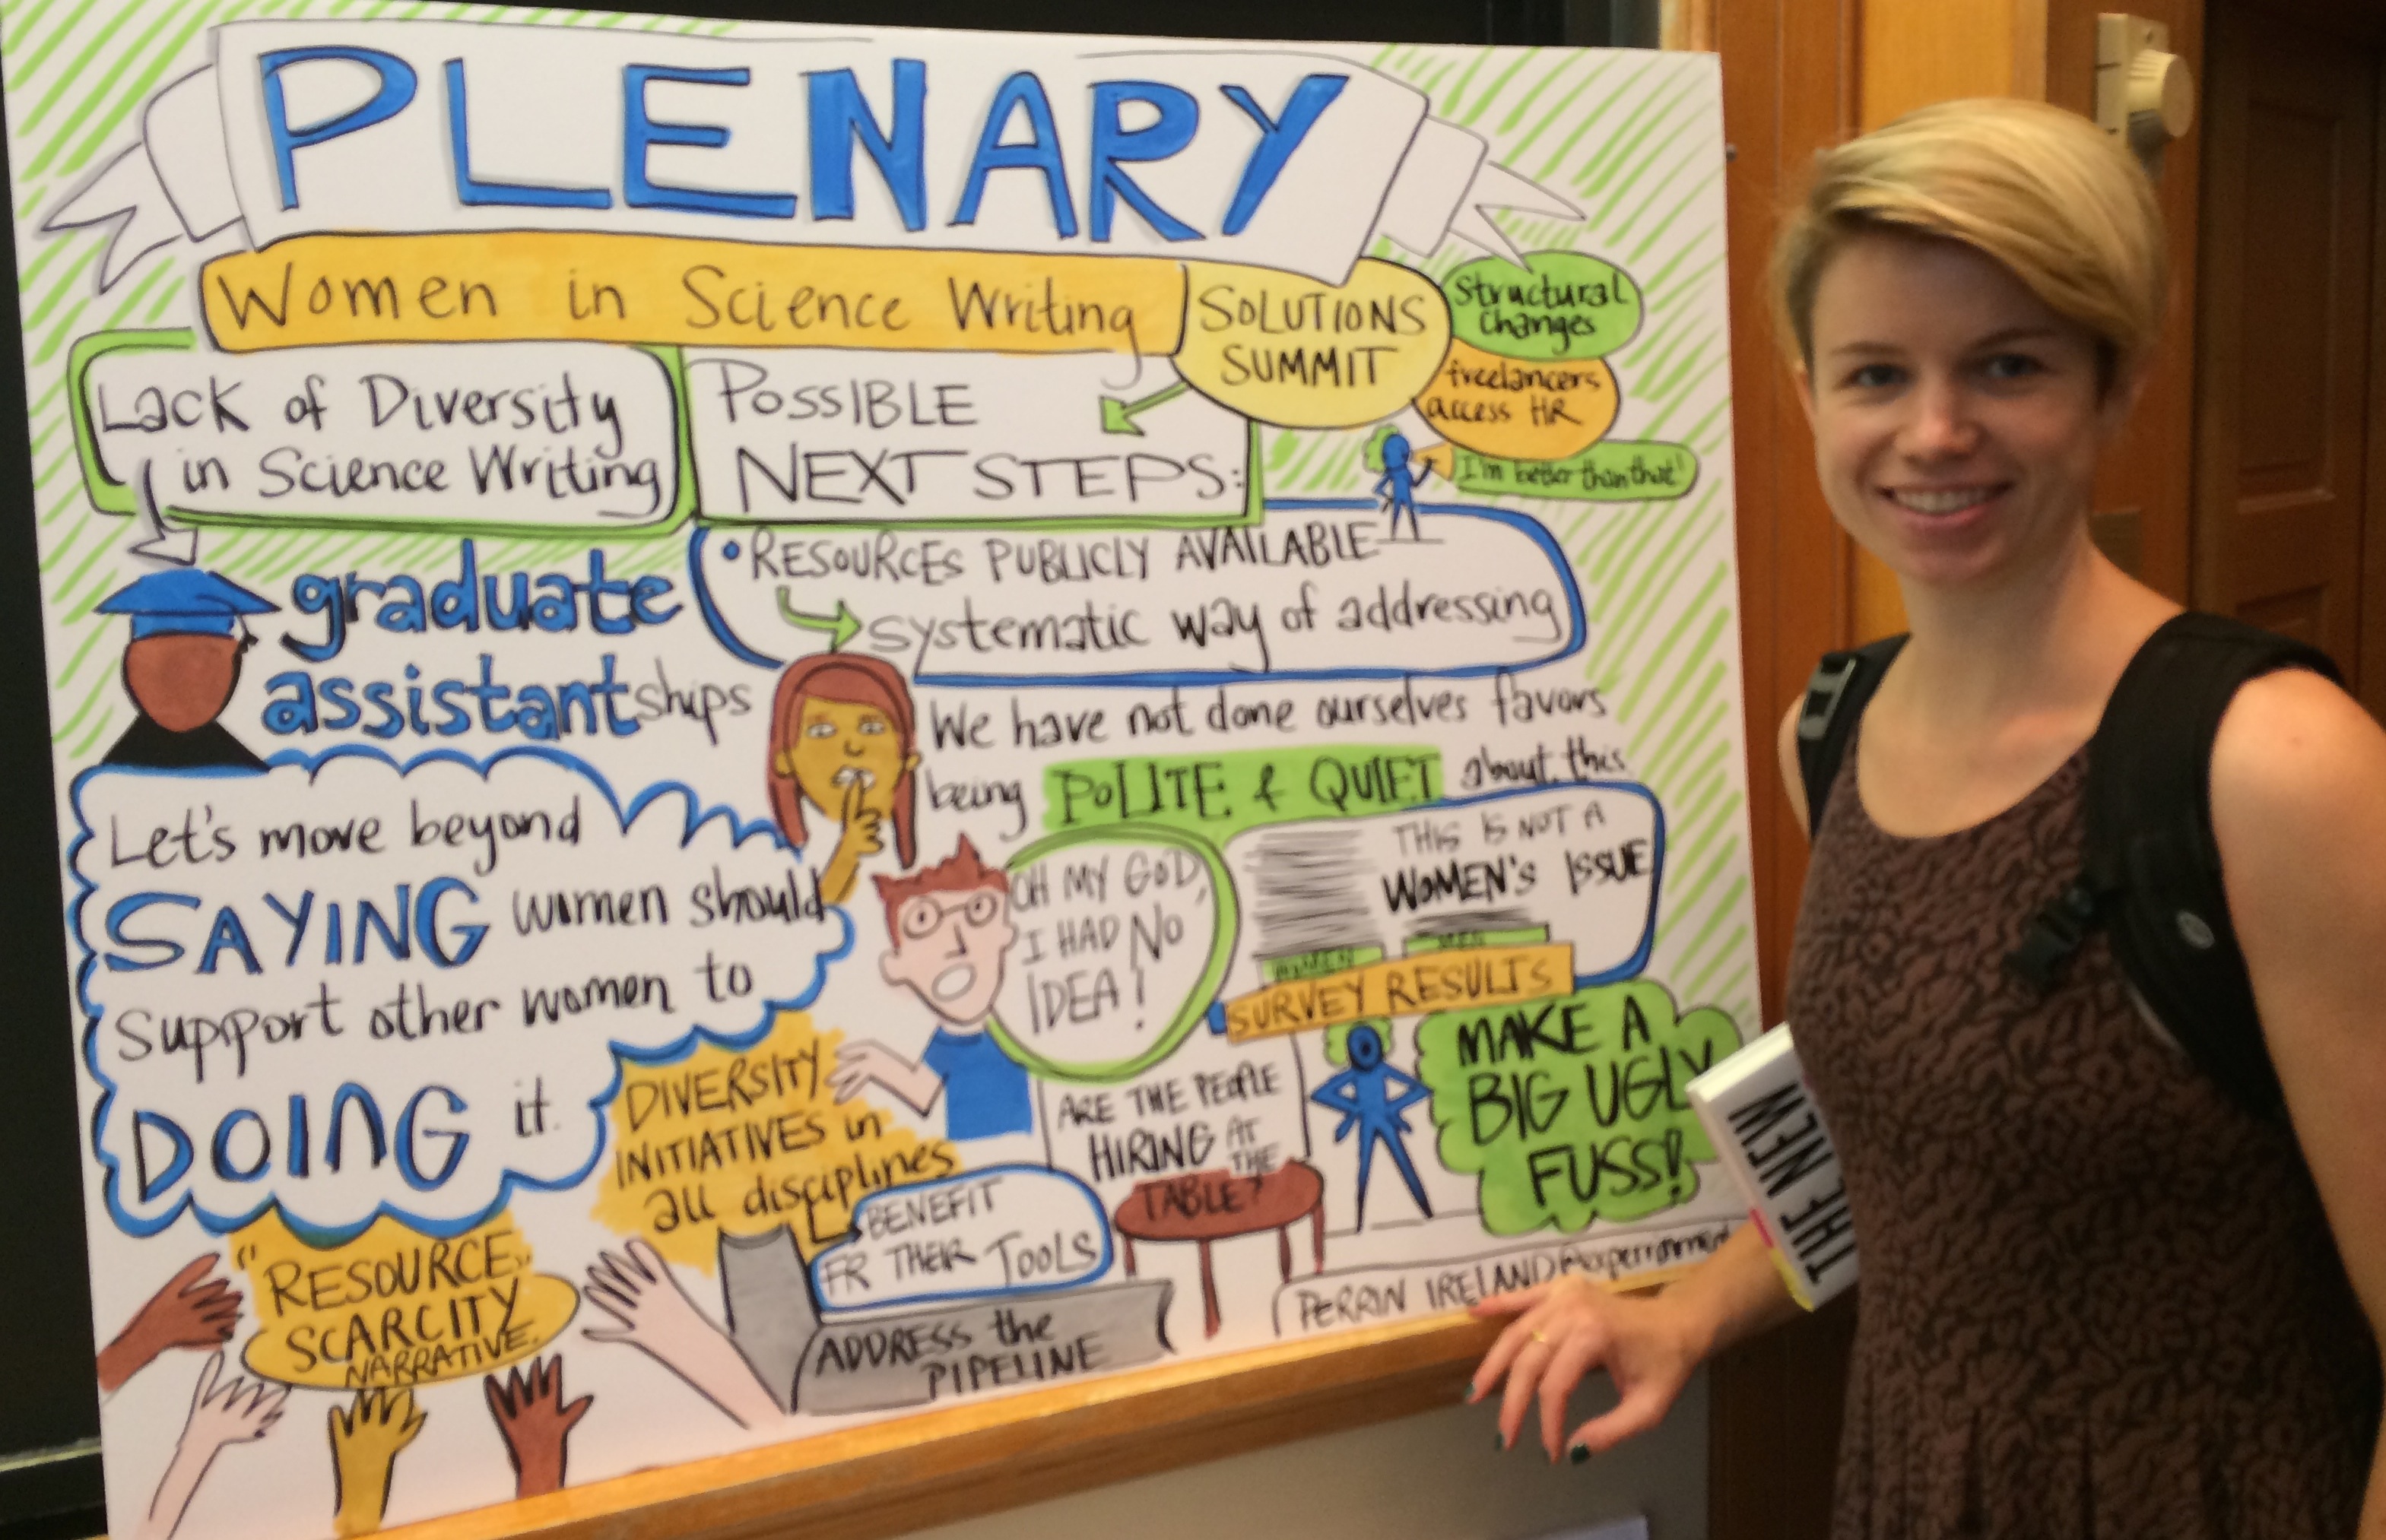 PLENARY
Women in Science Writing
SOLUTIONS
SUMMIT
Structural
changes
freelancers
access HR
I'm better than that!
Lack of Diversity
in Science Writing
POSSIBLE
NEXT STEPS:
graduate
assistantships
• RESOURCES PUBLICLY AVAILABLE
systematic way of addressing
We have not done ourselves favors
being POLITE & QUIET about this
Let's move beyond
SAYING women should
support other women to
DOING it.
OH MY GOD,
I HAD NO
IDEA!
THIS IS NOT A
WOMEN'S ISSUE
WOMEN
MEN
SURVEY RESULTS
MAKE A
BIG UGLY
FUSS!
DIVERSITY
INITIATIVES in
all disciplines
BENEFIT
FR THEIR TOOLS
ARE THE PEOPLE
HIRING AT
THE
TABLE?
"RESOURCE
SCARCITY
NARRATIVE.
ADDRESS the
PIPELINE
PERRIN IRELAND
THE NEW